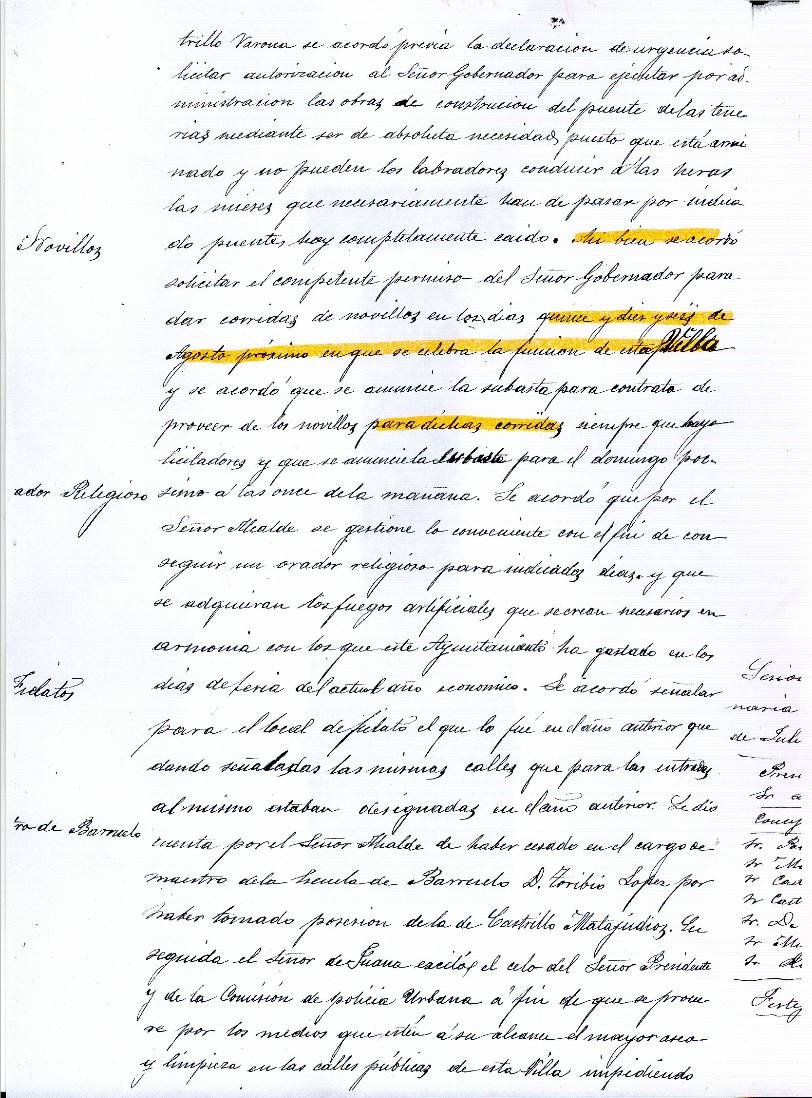 trillo Varona se acordó previa la declaracion de urgencia so-
licitar autorizacion al Señor Gobernador para ejecutar por ad-
ministracion las obras de construcion del puente de las tene
rias mediante ser de absoluta necesidad, puesto que está arrui
nado y no pueden los labradores conducir á las heras
las mieses que necesariamente han de pasar por indica
do puente, hoy completamente caido. Mi bien se acordó
Novillos
solicitar el competente permiso del Señor Gobernador para
dar corridas de novillos en los dias quince y diez y seis de
Agosto próximo en que se celebra la funcion de esta Villa
y se acordó que se anuncie la subasta para contrata de
proveer de los novillos para dichas corridas siempre que haya
licitadores y que se anuncie la subasta para el domingo pro-
simo á las once de la mañana. Se acordó que por el
ador Religioso
Señor Alcalde se gestione lo conveniente con el fin de con
seguir un orador religioso para indicados dias. y que
se adquieran los fuegos artificiales que se crean necesarios en
armonia con los que este Ayuntamiento ha gastado en los
dias de feria del actual año economico. Se acordó señalar
Fielatos
para el local de fielato el que lo fué en el año anterior que
dando señaladas las mismas calles que para las entradas
al mismo estaban designadas en el año anterior. Se dio
cuenta por el Señor Alcalde de haber cesado en el cargo de
tro de Barruelo
maestro de la Escuela de Barruelo D. Toribio Lopez por
haber tomado posesion de la de Castrillo Matajudios. En
seguida el Señor de Juana escitó el celo del Señor Presidente
y de la Comisión de policia Urbana á fin de que se procu-
re por los medios que estén á su alcance el mayor aseo
y limpieza en las calles públicas de esta Villa impidiendo
Señor
naria
de Juli
Presi
Sr. A
Concej
Sr.
Sr.
Sr.
Sr.
Sr. De
Sr.
Sr.
Festej